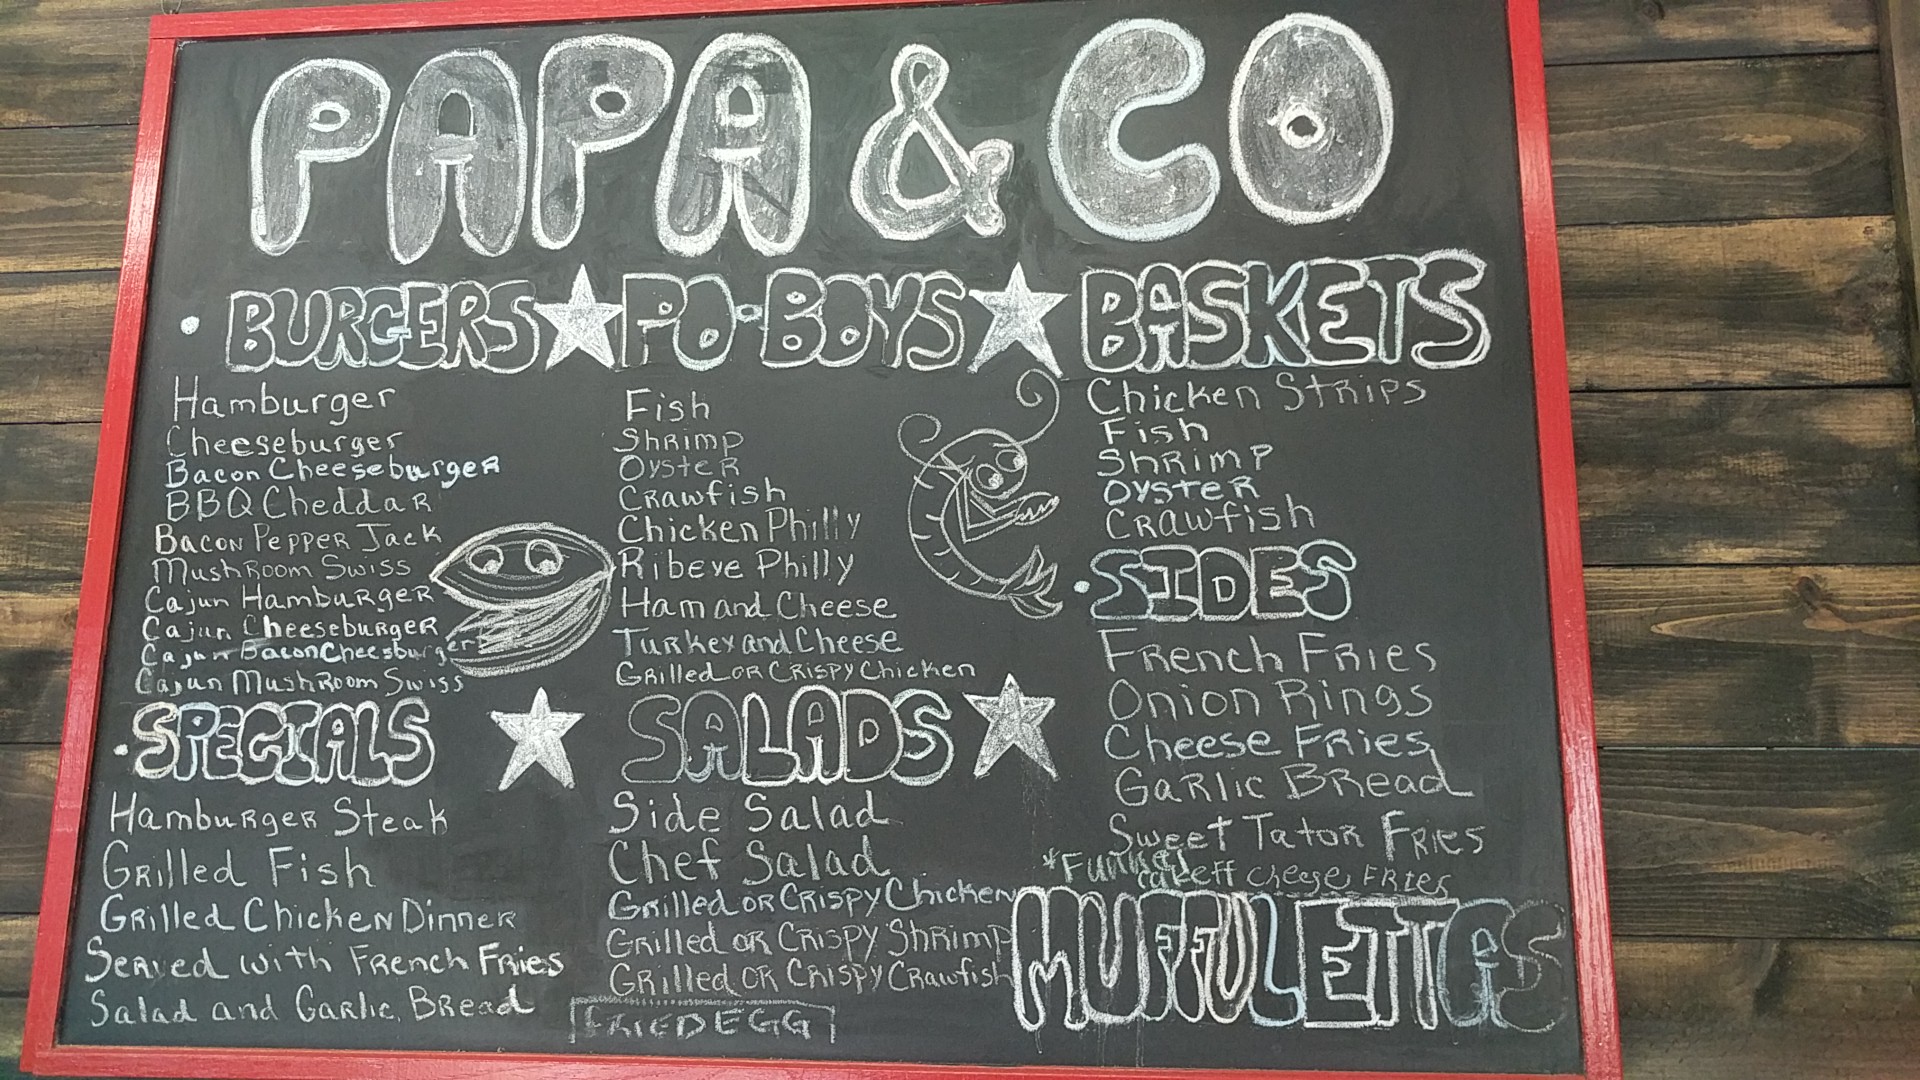 PAPA & CO
BURGERS
Hamburger
Cheeseburger
Bacon Cheeseburger
BBQ Cheddar
Bacon Pepper Jack
Mushroom Swiss
Cajun Hamburger
Cajun Cheeseburger
Cajun Bacon Cheesburger
Cajun Mushroom Swiss
SPECIALS
Hamburger Steak
Grilled Fish
Grilled Chicken Dinner
Served with French Fries
Salad and Garlic Bread
PO-BOYS
Fish
Shrimp
Oyster
Crawfish
Chicken Philly
Ribeye Philly
Ham and Cheese
Turkey and Cheese
Grilled or Crispy Chicken
SALADS
Side Salad
Chef Salad
Grilled or Crispy Chicken
Grilled or Crispy Shrimp
Grilled or Crispy Crawfish
FRIED EGG
BASKETS
Chicken Strips
Fish
Shrimp
Oyster
Crawfish
SIDES
French Fries
Onion Rings
Cheese Fries
Garlic Bread
Sweet Tator Fries
*Funnel
cheese Fries
MUFFULETTAS